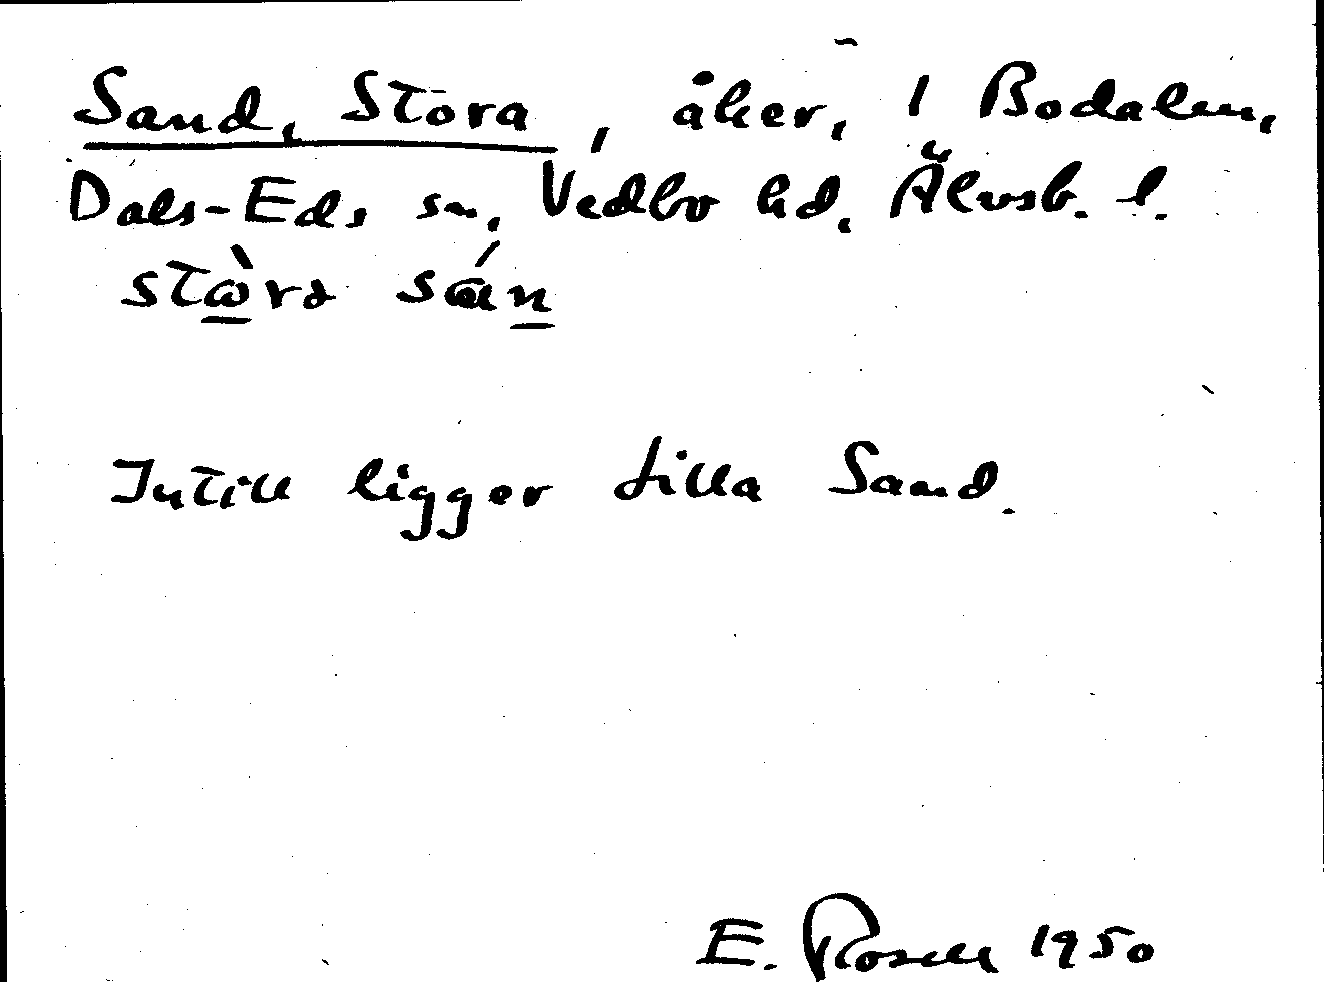 Sand, Stora, åker, 1 Bodalen,
Dals-Eds sn, Vedbo hd, Älvsb. l.
stὼrа sán
Intill ligger Lilla Sand.
E. Rosell 1950